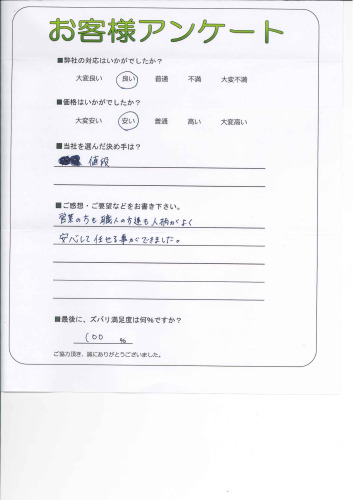 お客様アンケート
■弊社の対応はいかがでしたか？
大変良い 良い 普通 不満 大変不満
■価格はいかがでしたか？
大変安い 安い 普通 高い 大変高い
■当社を選んだ決め手は？
値段
■ご感想・ご要望などをお書き下さい。
営業の方も職人の方達も人柄がよく
安心して任せる事ができました。
■最後に、ズバリ満足度は何%ですか？
100 %
ご協力頂き、誠にありがとうございました。